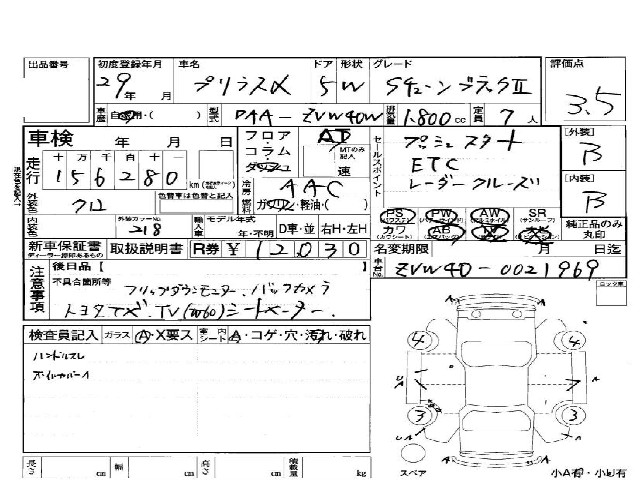 出品番号 初度登録年月 車名 ドア 形状 グレード 評価点
29年 月 プリウスα 5 W SチューンブラックⅡ 3.5
車歴 自家用・( ) 型式 DAA-ZVW40W 排気量 1800cc 定員 7人
車検 年 月 日 フロア・コラム・ダッシュ AT MTのみ記入 速
セールスポイント プッシュスタート
ETC
レーダークルーズ
[外装] B
[内装] B
走行 十 万 千 百 十 一
156280 km
冷房 AAC
燃料 ガソリン・軽油・( )
外装色 クロ 色替車は色替前の色
外装カラーNo. 218
内装色 輸入車 モデル年式 年・不明 D車・並 右H・左H
PS PW AW SR (サンルーフ)
カワ AB 純正品のみ丸印
新車保証書 取扱説明書 R券 ¥12030
ディーラー捺印あるもの
名変期限 月 日迄
車台No. ZVW40-0021969
注意事項 後日品【 】
不具合箇所等
フリップダウンモニター、バックカメラ
トヨタナビ、TV(W60)シートヒーター
検査員記入 ガラス A・X要ス 室内シート A・コゲ・穴・汚れ・破れ
ハンドルスレ
ロック車
4 4
UA A A
3 3
UA A A
スペア 小A有・小U有
長さ cm 幅 cm 高さ cm 積載量 kg